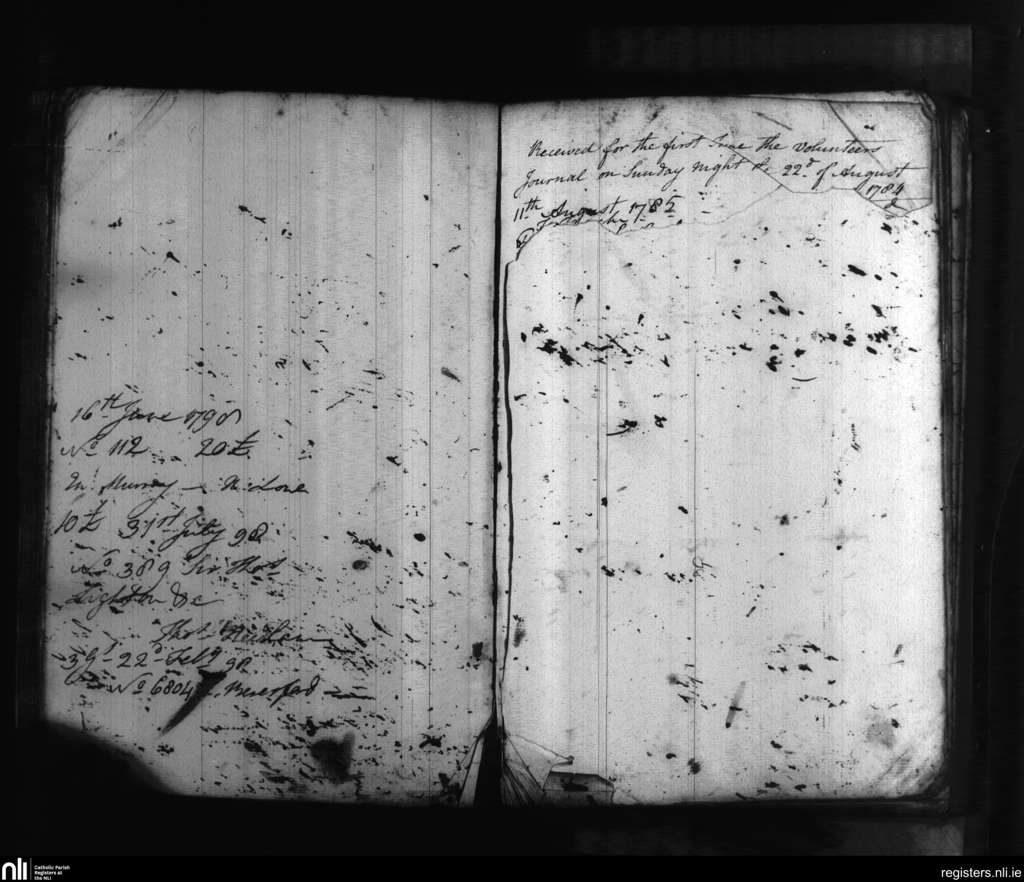 16th June 1798
No 112 20£
Murray
10£ 31st July 98
No 389 Sir Thos
Lighton &c
Thos
3gs 22d Feby 98
No 6804 Beresford
Received for the first time the Volunteers
Journal on Sunday night 22d of August
1784
11th August 1785
nli
Catholic Parish
Registers at
the NLI
registers.nli.ie